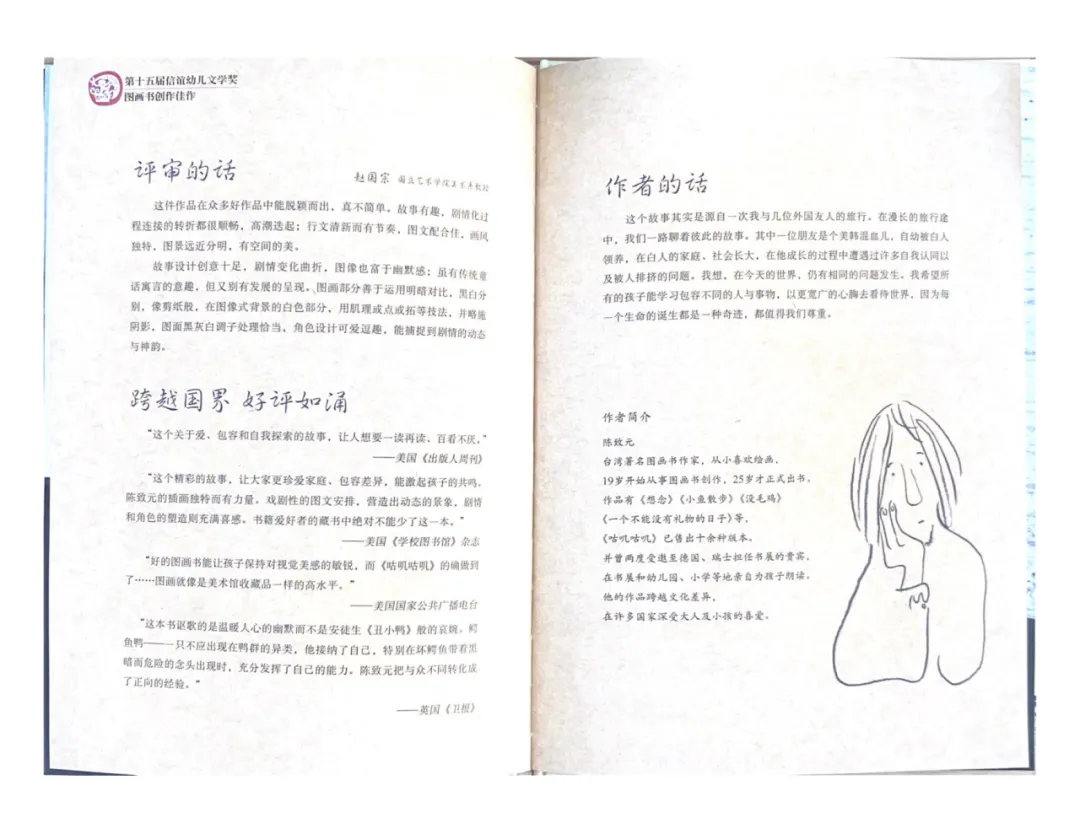 第十五届信谊幼儿文学奖
图画书创作佳作
评审的话
赵国宗 国立艺术学院美术系教授
这件作品在众多好作品中能脱颖而出，真不简单。故事有趣，剧情化过
程连接的转折都很顺畅，高潮迭起；行文清新而有节奏，图文配合佳，画风
独特，图景远近分明，有空间的美。
故事设计创意十足，剧情变化曲折，图像也富于幽默感；虽有传统童
话寓言的意趣，但又别有发展的呈现。图画部分善于运用明暗对比，黑白分
别，像剪纸般，在图像式背景的白色部分，用肌理或点或拓等技法，并略施
阴影，图面黑灰白调子处理恰当，角色设计可爱逗趣，能捕捉到剧情的动态
与神韵。
跨越国界 好评如涌
“这个关于爱、包容和自我探索的故事，让人想要一读再读、百看不厌。”
——美国《出版人周刊》
“这个精彩的故事，让大家更珍爱家庭、包容差异，能激起孩子的共鸣。
陈致元的插画独特而有力量。戏剧性的图文安排，营造出动态的景象，剧情
和角色的塑造则充满喜感。书籍爱好者的藏书中绝对不能少了这一本。”
——美国《学校图书馆》杂志
“好的图画书能让孩子保持对视觉美感的敏锐，而《咕叽咕叽》的确做到
了……图画就像是美术馆收藏品一样的高水平。”
——美国国家公共广播电台
“这本书讴歌的是温暖人心的幽默而不是安徒生《丑小鸭》般的哀婉。鳄
鱼鸭——一只不应出现在鸭群的异类，他接纳了自己，特别在坏鳄鱼带着黑
暗而危险的念头出现时，充分发挥了自己的能力。陈致元把与众不同转化成
了正向的经验。”
——英国《卫报》
作者的话
这个故事其实是源自一次我与几位外国友人的旅行。在漫长的旅行途
中，我们一路聊着彼此的故事。其中一位朋友是个美韩混血儿，自幼被白人
领养，在白人的家庭、社会长大，在他成长的过程中遭遇过许多自我认同以
及被人排挤的问题。我想，在今天的世界，仍有相同的问题发生。我希望所
有的孩子能学习包容不同的人与事物，以更宽广的心胸去看待世界，因为每
一个生命的诞生都是一种奇迹，都值得我们尊重。
作者简介
陈致元
台湾著名图画书作家，从小喜欢绘画，
19岁开始从事图画书创作，25岁才正式出书。
作品有《想念》《小鱼散步》《没毛鸡》
《一个不能没有礼物的日子》等，
《咕叽咕叽》已售出十余种版本。
并曾两度受邀至德国、瑞士担任书展的贵宾，
在书展和幼儿园、小学等地亲自为孩子朗读。
他的作品跨越文化差异，
在许多国家深受大人及小孩的喜爱。